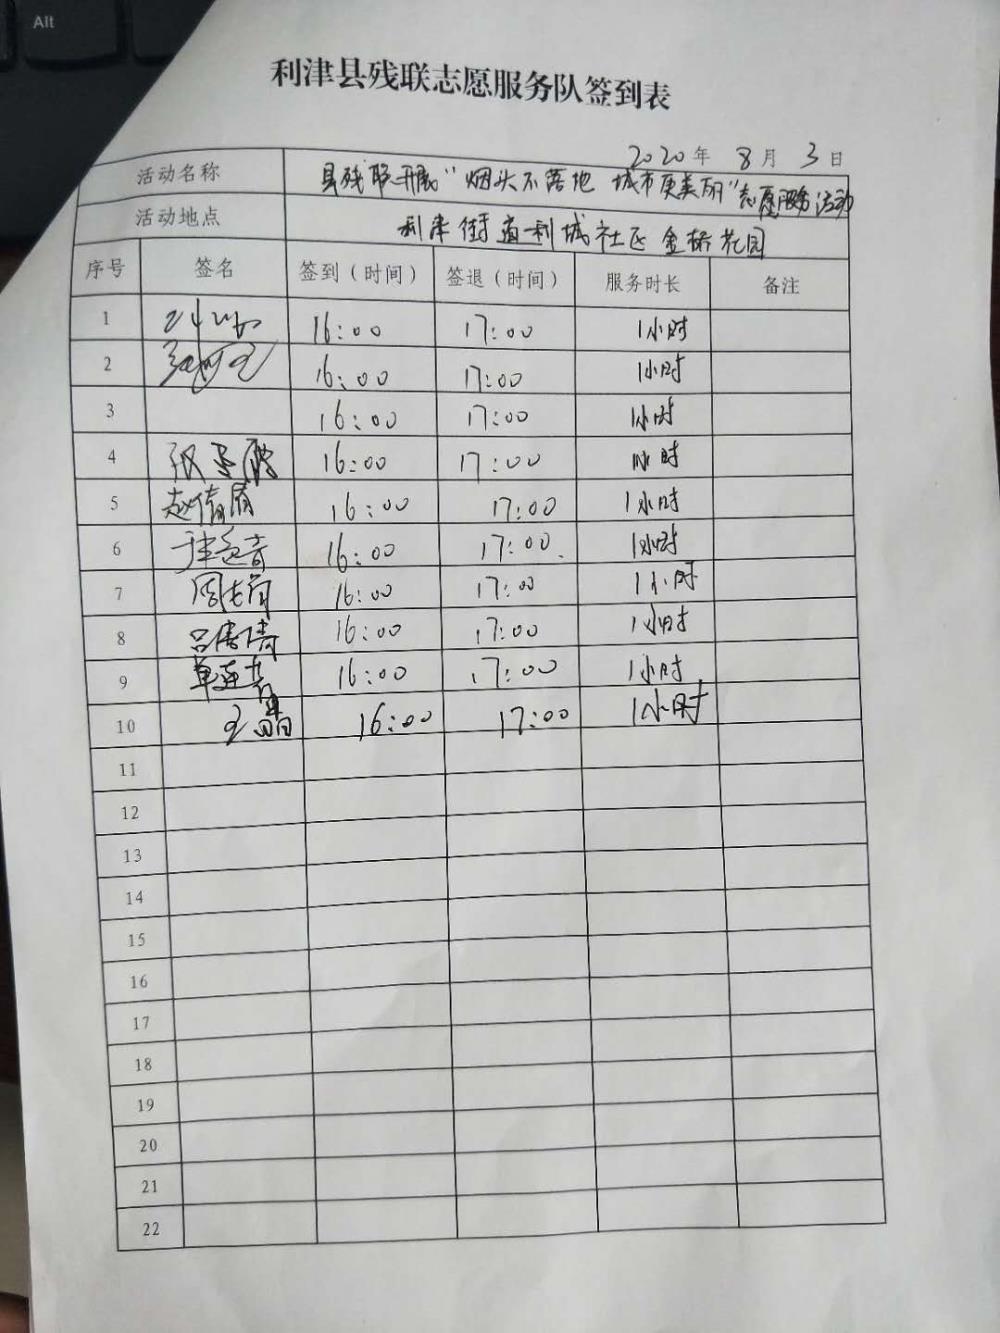 Alt
利津县残联志愿服务队签到表
2020年 8月 3日
活动名称 县残联开展"烟头不落地 城市更美丽"志愿服务活动
活动地点 利津街道利城社区金桥花园
序号 签名 签到（时间） 签退（时间） 服务时长 备注
1 16:00 17:00 1小时
2 16:00 17:00 1小时
3 16:00 17:00 1小时
4 16:00 17:00 1小时
5 16:00 17:00 1小时
6 16:00 17:00 1小时
7 16:00 17:00 1小时
8 16:00 17:00 1小时
9 16:00 17:00 1小时
10 王晶 16:00 17:00 1小时
11
12
13
14
15
16
17
18
19
20
21
22